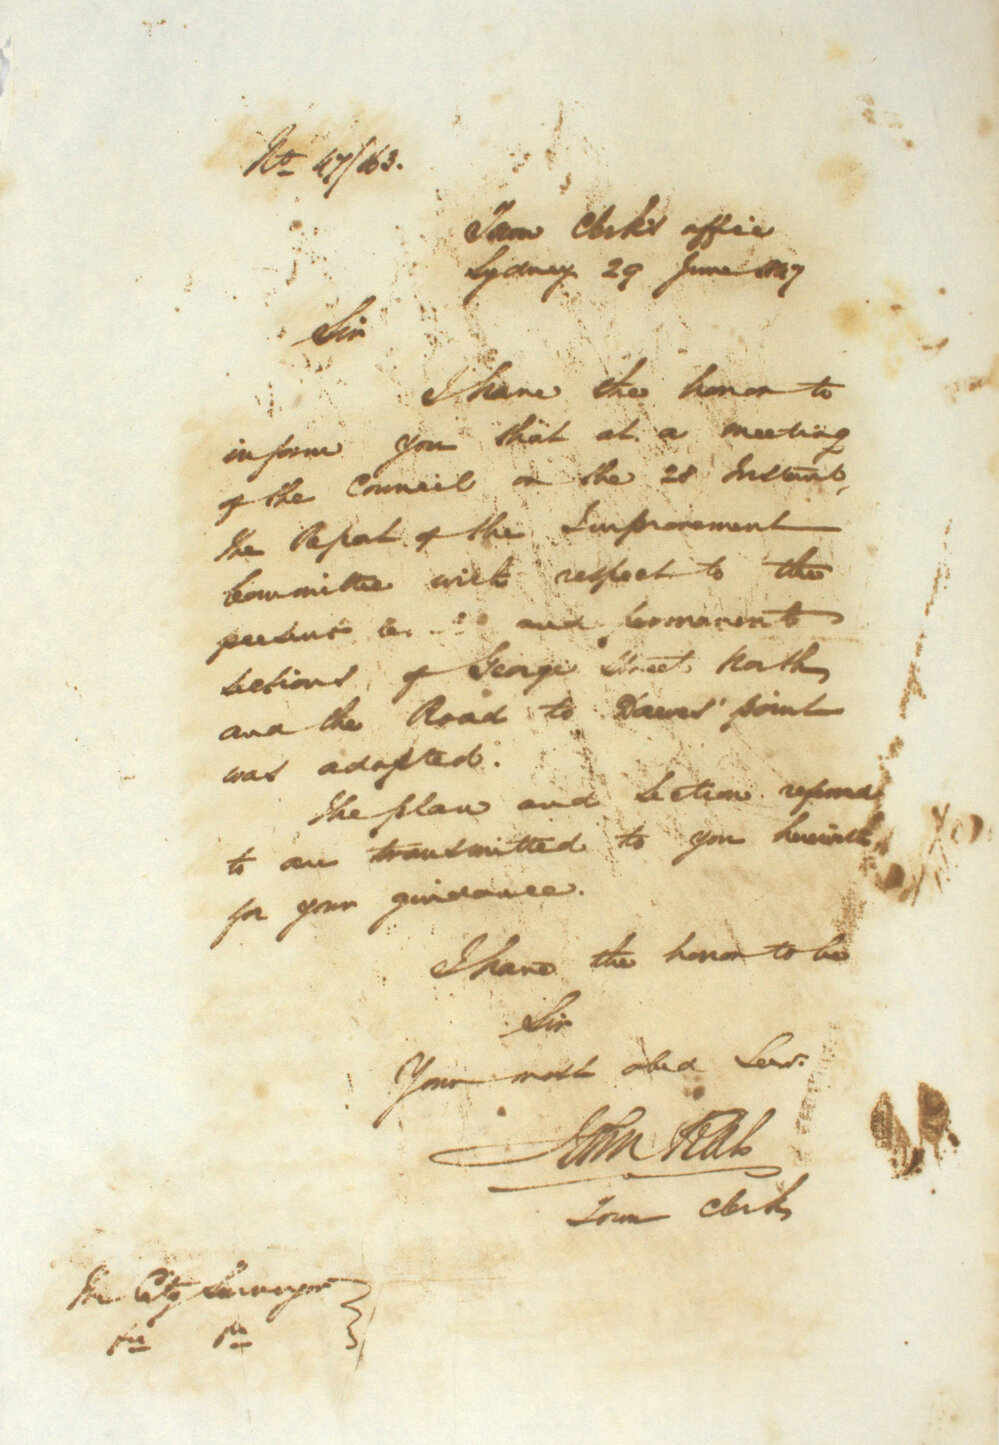 No 47/163.
Town Clerk's office
Sydney 29 June 1847
Sir
I have the honor to
inform you that at a meeting
of the Council on the 28 Instant,
the Report of the Improvement
Committee with respect to the
present and permanent
sections of George Street North
and the Road to Dawes' point
was adopted.
The plan and section referred
to are transmitted to you herewith
for your guidance.
I have the honor to be
Sir
Your most obed Serv.
John
Town Clerk
The City Surveyor